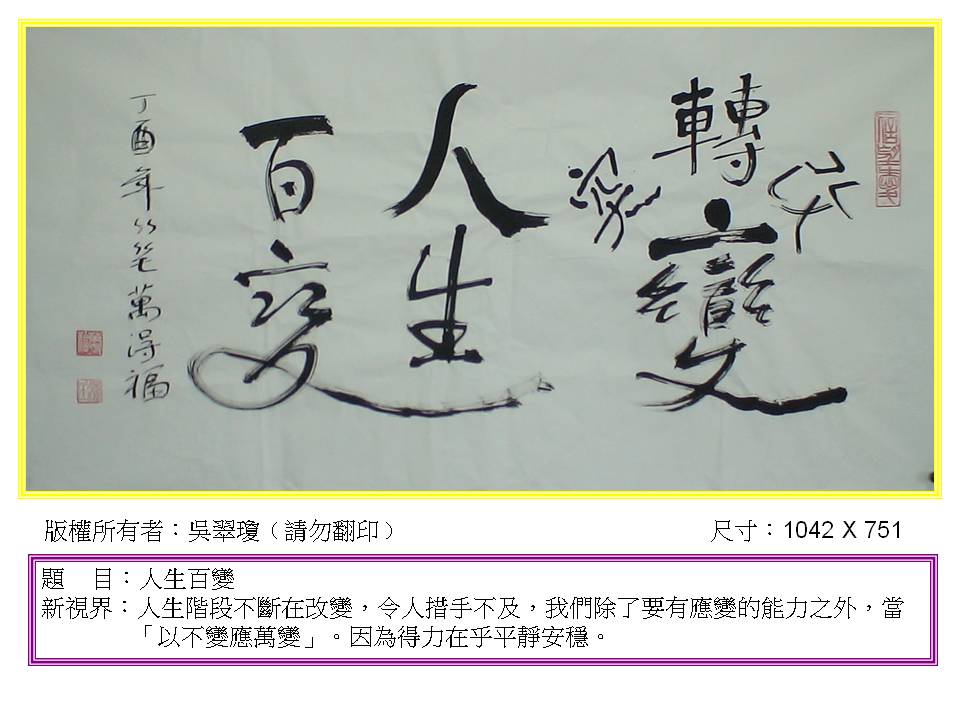 轉變
人生
百變
丁酉年 萬得福
版權所有者：吳翠瓊（請勿翻印）
尺寸：1042 X 751
題　目：人生百變
新視界：人生階段不斷在改變，令人措手不及，我們除了要有應變的能力之外，當
「以不變應萬變」。因為得力在乎平靜安穩。